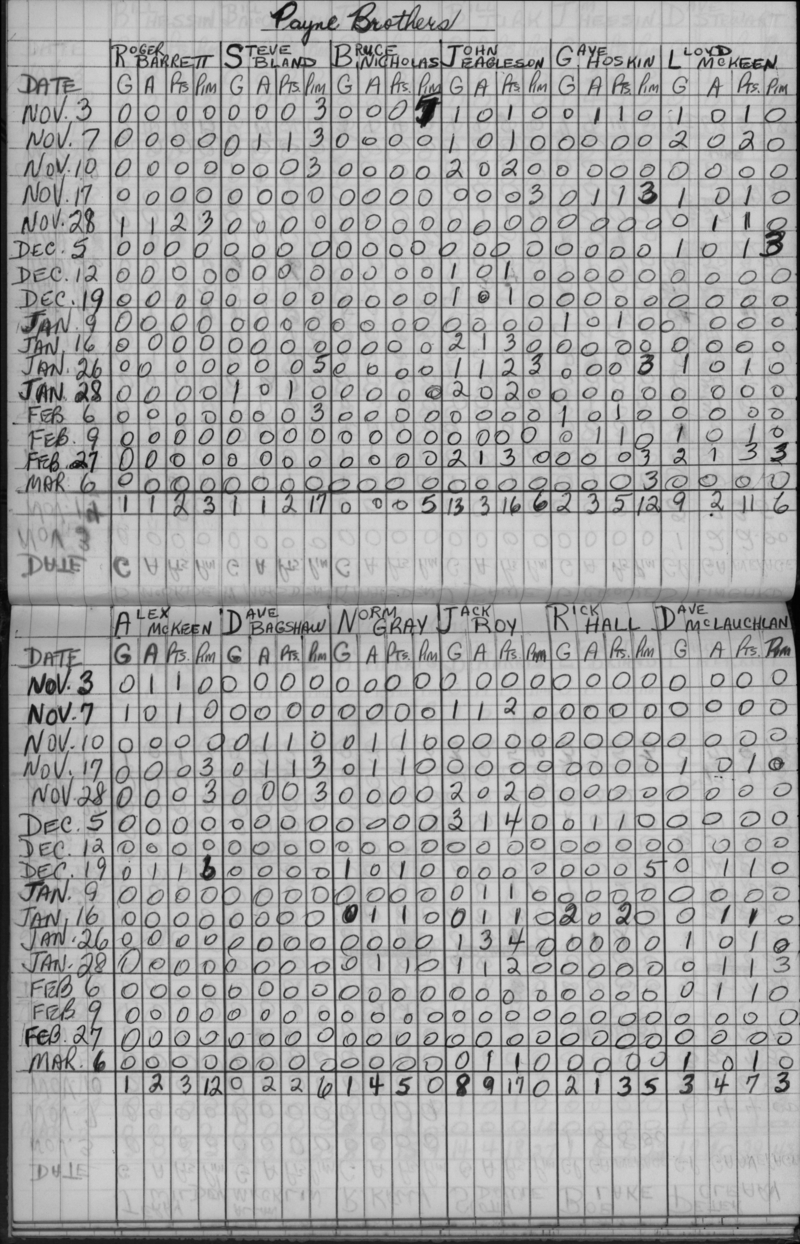 Payne Brothers
ROGER BARRETT STEVE BLAND BRUCE NICHOLAS JOHN EAGLESON GAYE HOSKIN LLOYD MCKEEN
DATE G A Pts Pim G A Pts. Pim G A Pts. Pim G A Pts Pim G A Pts Pim G A Pts. Pim
NOV. 3 0 0 0 0 0 0 0 3 0 0 0 5 1 0 1 0 0 1 1 0 1 0 1 0
NOV. 7 0 0 0 0 0 1 1 3 0 0 0 0 1 0 1 0 0 0 0 0 2 0 2 0
NOV. 10 0 0 0 0 0 0 0 3 0 0 0 0 2 0 2 0 0 0 0 0 0 0 0 0
NOV. 17 0 0 0 0 0 0 0 0 0 0 0 0 0 0 0 3 0 1 1 3 1 0 1 0
NOV. 28 1 1 2 3 0 0 0 0 0 0 0 0 0 0 0 0 0 0 0 0 0 1 1 0
DEC. 5 0 0 0 0 0 0 0 0 0 0 0 0 0 0 0 0 0 0 0 0 1 0 1 3
DEC. 12 0 0 0 0 0 0 0 0 0 0 0 0 1 0 1 0 0 0 0 0 0 0 0 0
DEC. 19 0 0 0 0 0 0 0 0 0 0 0 0 1 0 1 0 0 0 0 0 0 0 0 0
JAN. 9 0 0 0 0 0 0 0 0 0 0 0 0 0 0 0 0 1 0 1 0 0 0 0 0
JAN. 16 0 0 0 0 0 0 0 0 0 0 0 0 2 1 3 0 0 0 0 0 0 0 0 0
JAN. 26 0 0 0 0 0 0 0 5 0 0 0 0 1 1 2 3 0 0 0 3 1 0 1 0
JAN. 28 0 0 0 0 1 0 1 0 0 0 0 0 2 0 2 0 0 0 0 0 0 0 0 0
FEB 6 0 0 0 0 0 0 0 3 0 0 0 0 0 0 0 0 1 0 1 0 0 0 0 0
FEB. 9 0 0 0 0 0 0 0 0 0 0 0 0 0 0 0 0 0 1 1 0 1 0 1 0
FEB. 27 0 0 0 0 0 0 0 0 0 0 0 0 2 1 3 0 0 0 0 3 2 1 3 3
MAR 6 0 0 0 0 0 0 0 0 0 0 0 0 0 0 0 0 0 0 0 3 0 0 0 0
1 1 2 3 1 1 2 17 0 0 0 5 13 3 16 6 2 3 5 12 9 2 11 6
ALEX MCKEEN DAVE BAGSHAW NORM GRAY JACK ROY RICK HALL DAVE MCLAUCHLAN
DATE G A Pts. Pim G A Pts. Pim G A Pts. Pim G A Pts Pim G A Pts. Pim G A Pts. Pim
NOV. 3 0 1 1 0 0 0 0 0 0 0 0 0 0 0 0 0 0 0 0 0 0 0 0 0
NOV. 7 1 0 1 0 0 0 0 0 0 0 0 0 1 1 2 0 0 0 0 0 0 0 0 0
NOV. 10 0 0 0 0 0 1 1 0 0 1 1 0 0 0 0 0 0 0 0 0 0 0 0 0
NOV. 17 0 0 0 3 0 1 1 3 0 1 1 0 0 0 0 0 0 0 0 0 1 0 1 0
NOV. 28 0 0 0 3 0 0 0 3 0 0 0 0 2 0 2 0 0 0 0 0 0 0 0 0
DEC. 5 0 0 0 0 0 0 0 0 0 0 0 0 3 1 4 0 0 1 1 0 0 0 0 0
DEC. 12 0 0 0 0 0 0 0 0 0 0 0 0 0 0 0 0 0 0 0 0 0 0 0 0
DEC. 19 0 1 1 6 0 0 0 0 1 0 1 0 0 0 0 0 0 0 0 5 0 1 1 0
JAN. 9 0 0 0 0 0 0 0 0 0 0 0 0 0 1 1 0 0 0 0 0 0 0 0 0
JAN. 16 0 0 0 0 0 0 0 0 0 1 1 0 0 1 1 0 2 0 2 0 0 1 1 0
JAN. 26 0 0 0 0 0 0 0 0 0 0 0 0 1 3 4 0 0 0 0 0 1 0 1 0
JAN. 28 0 0 0 0 0 0 0 0 0 1 1 0 1 1 2 0 0 0 0 0 0 1 1 3
FEB 6 0 0 0 0 0 0 0 0 0 0 0 0 0 0 0 0 0 0 0 0 0 1 1 0
FEB 9 0 0 0 0 0 0 0 0 0 0 0 0 0 0 0 0 0 0 0 0 0 0 0 0
FEB. 27 0 0 0 0 0 0 0 0 0 0 0 0 0 0 0 0 0 0 0 0 0 0 0 0
MAR. 6 0 0 0 0 0 0 0 0 0 0 0 0 0 1 1 0 0 0 0 0 1 0 1 0
1 2 3 12 0 2 2 6 1 4 5 0 8 9 17 0 2 1 3 5 3 4 7 3